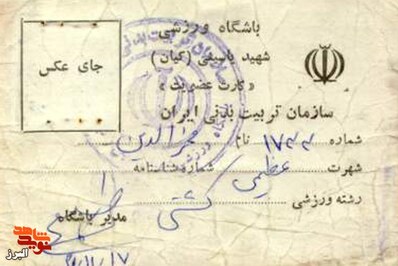 باشگاه ورزشی
شهید یاسینی (کیان)
« کارت عضویت »
سازمان تربیت بدنی ایران
جای عکس
شماره ۱۷۴۴ نام
شهرت عظیمی شماره شناسنامه
رشته ورزشی کشتی
مدیر باشگاه
نوید شاهد
البرز